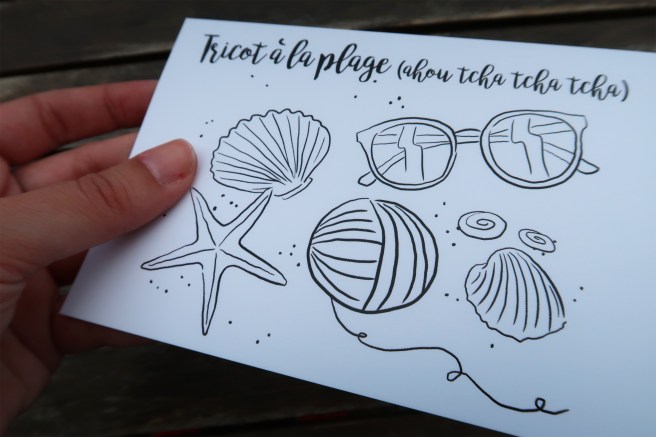 Tricot à la plage (ahou tcha tcha tcha)